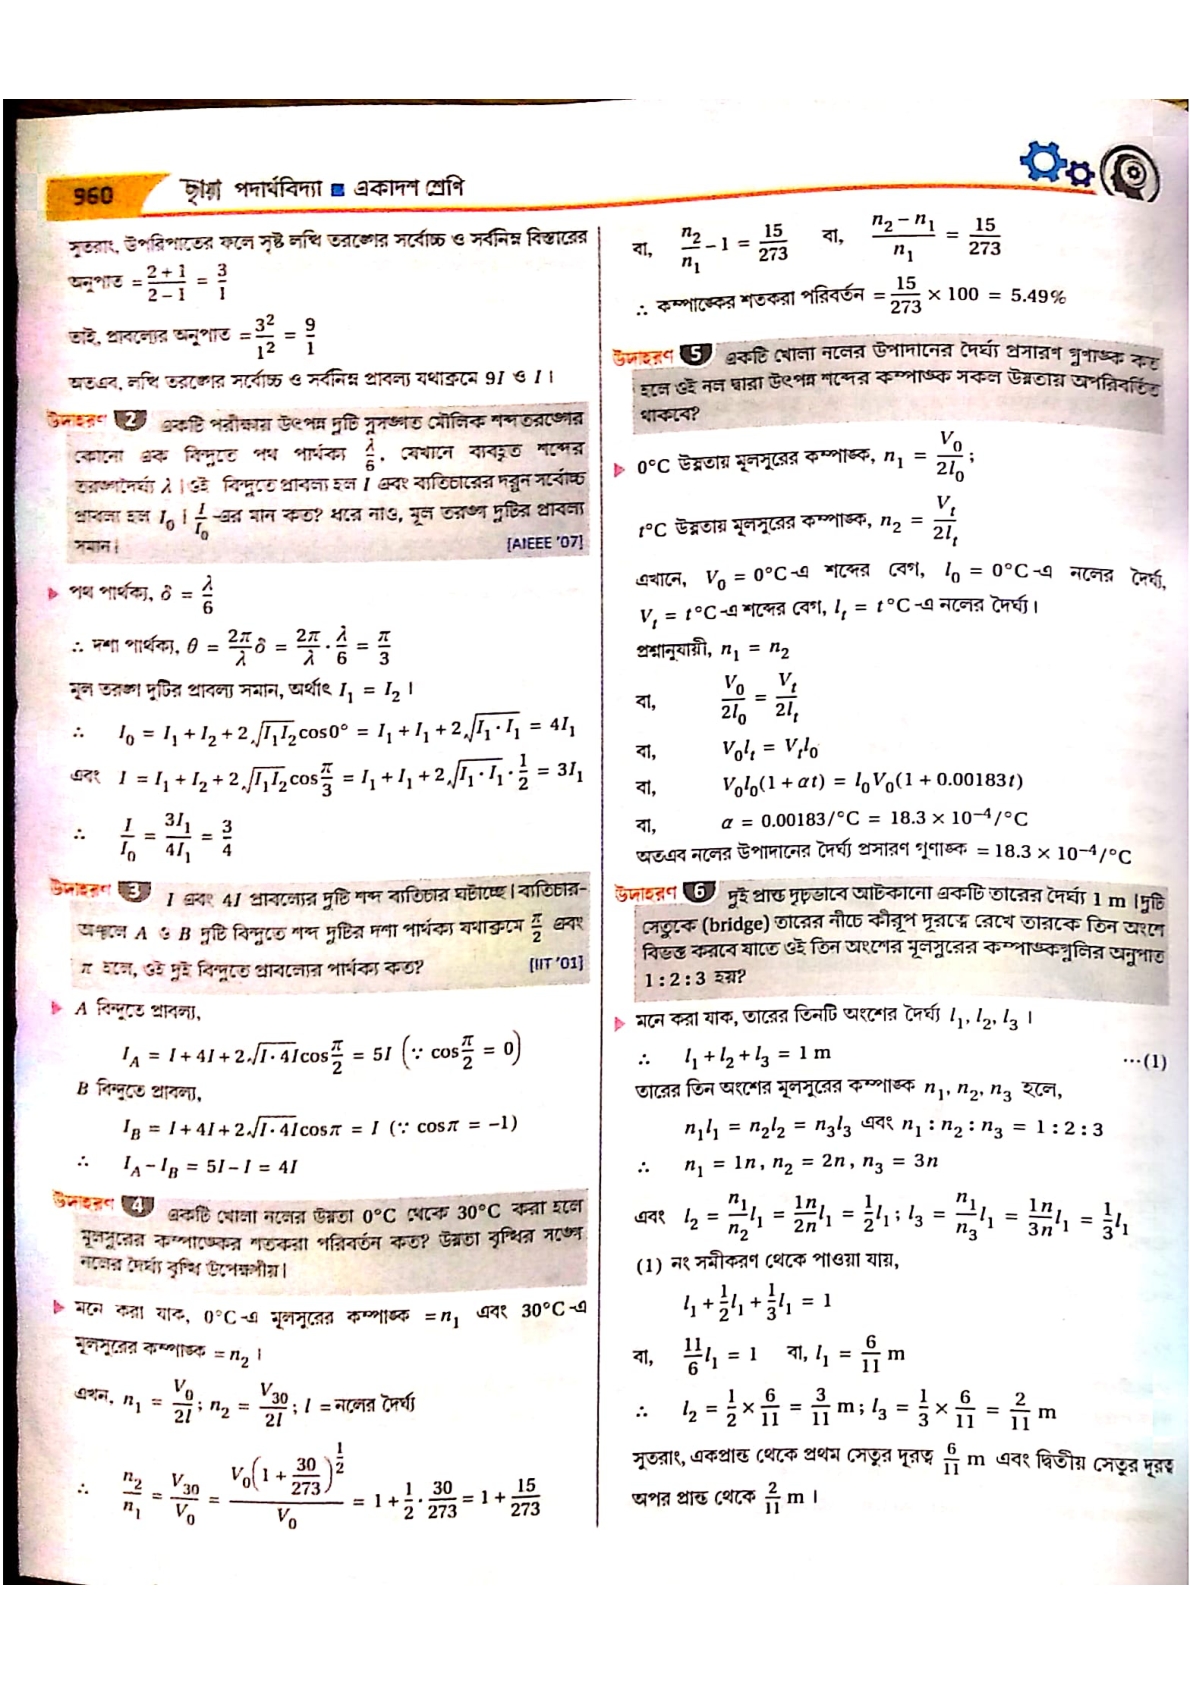 960 ছায়া পদার্থবিদ্যা ■ একাদশ শ্রেণি
সুতরাং, উপরিপাতের ফলে সৃষ্ট লব্ধি তরঙ্গের সর্বোচ্চ ও সর্বনিম্ন বিস্তারের
অনুপাত = (2 + 1)/(2 − 1) = 3/1
তাই, প্রাবল্যের অনুপাত = 3²/1² = 9/1
অতএব, লব্ধি তরঙ্গের সর্বোচ্চ ও সর্বনিম্ন প্রাবল্য যথাক্রমে 9I ও I ।
উদাহরণ 2 একটি পরীক্ষায় উৎপন্ন দুটি সুসঙ্গত মৌলিক শব্দতরঙ্গের
কোনো এক বিন্দুতে পথ পার্থক্য λ/6, যেখানে ব্যবহৃত শব্দের
তরঙ্গদৈর্ঘ্য λ । ওই বিন্দুতে প্রাবল্য হল I এবং ব্যতিচারের দরুন সর্বোচ্চ
প্রাবল্য হল I₀ । I/I₀ -এর মান কত? ধরে নাও, মূল তরঙ্গ দুটির প্রাবল্য
সমান। [AIEEE '07]
পথ পার্থক্য, δ = λ/6
∴ দশা পার্থক্য, θ = (2π/λ)δ = (2π/λ)·(λ/6) = π/3
মূল তরঙ্গ দুটির প্রাবল্য সমান, অর্থাৎ I₁ = I₂ ।
∴ I₀ = I₁ + I₂ + 2√(I₁I₂)cos0° = I₁ + I₁ + 2√(I₁·I₁) = 4I₁
এবং I = I₁ + I₂ + 2√(I₁I₂)cos(π/3) = I₁ + I₁ + 2√(I₁·I₁)·(1/2) = 3I₁
∴ I/I₀ = 3I₁/4I₁ = 3/4
উদাহরণ 3 I এবং 4I প্রাবল্যের দুটি শব্দ ব্যতিচার ঘটাচ্ছে। ব্যতিচার-
অঞ্চলে A ও B দুটি বিন্দুতে শব্দ দুটির দশা পার্থক্য যথাক্রমে π/2 এবং
π হলে, ওই দুই বিন্দুতে প্রাবল্যের পার্থক্য কত? [IIT '01]
A বিন্দুতে প্রাবল্য,
I_A = I + 4I + 2√(I·4I)cos(π/2) = 5I (∵ cos(π/2) = 0)
B বিন্দুতে প্রাবল্য,
I_B = I + 4I + 2√(I·4I)cosπ = I (∵ cosπ = −1)
∴ I_A − I_B = 5I − I = 4I
উদাহরণ 4 একটি খোলা নলের উষ্ণতা 0°C থেকে 30°C করা হলে
মূলসুরের কম্পাঙ্কের শতকরা পরিবর্তন কত? উষ্ণতা বৃদ্ধির সঙ্গে
নলের দৈর্ঘ্য বৃদ্ধি উপেক্ষণীয়।
মনে করা যাক, 0°C-এ মূলসুরের কম্পাঙ্ক = n₁ এবং 30°C-এ
মূলসুরের কম্পাঙ্ক = n₂ ।
এখন, n₁ = V₀/2l ; n₂ = V₃₀/2l ; l = নলের দৈর্ঘ্য
∴ n₂/n₁ = V₃₀/V₀ = V₀(1 + 30/273)^(1/2)/V₀ = 1 + (1/2)·(30/273) = 1 + 15/273
বা, n₂/n₁ − 1 = 15/273 বা, (n₂ − n₁)/n₁ = 15/273
∴ কম্পাঙ্কের শতকরা পরিবর্তন = 15/273 × 100 = 5.49%
উদাহরণ 5 একটি খোলা নলের উপাদানের দৈর্ঘ্য প্রসারণ গুণাঙ্ক কত
হলে ওই নল দ্বারা উৎপন্ন শব্দের কম্পাঙ্ক সকল উষ্ণতায় অপরিবর্তিত
থাকবে?
0°C উষ্ণতায় মূলসুরের কম্পাঙ্ক, n₁ = V₀/2l₀ ;
t°C উষ্ণতায় মূলসুরের কম্পাঙ্ক, n₂ = Vₜ/2lₜ
এখানে, V₀ = 0°C-এ শব্দের বেগ, l₀ = 0°C-এ নলের দৈর্ঘ্য,
Vₜ = t°C-এ শব্দের বেগ, lₜ = t°C-এ নলের দৈর্ঘ্য।
প্রশ্নানুযায়ী, n₁ = n₂
বা, V₀/2l₀ = Vₜ/2lₜ
বা, V₀lₜ = Vₜl₀
বা, V₀l₀(1 + αt) = l₀V₀(1 + 0.00183t)
বা, α = 0.00183/°C = 18.3 × 10⁻⁴/°C
অতএব নলের উপাদানের দৈর্ঘ্য প্রসারণ গুণাঙ্ক = 18.3 × 10⁻⁴/°C
উদাহরণ 6 দুই প্রান্ত দৃঢ়ভাবে আটকানো একটি তারের দৈর্ঘ্য 1 m । দুটি
সেতুকে (bridge) তারের নীচে কীরূপ দূরত্বে রেখে তারকে তিন অংশে
বিভক্ত করবে যাতে ওই তিন অংশের মূলসুরের কম্পাঙ্কগুলির অনুপাত
1 : 2 : 3 হয়?
মনে করা যাক, তারের তিনটি অংশের দৈর্ঘ্য l₁, l₂, l₃ ।
∴ l₁ + l₂ + l₃ = 1 m ···(1)
তারের তিন অংশের মূলসুরের কম্পাঙ্ক n₁, n₂, n₃ হলে,
n₁l₁ = n₂l₂ = n₃l₃ এবং n₁ : n₂ : n₃ = 1 : 2 : 3
∴ n₁ = 1n, n₂ = 2n, n₃ = 3n
এবং l₂ = (n₁/n₂)l₁ = (1n/2n)l₁ = (1/2)l₁ ; l₃ = (n₁/n₃)l₁ = (1n/3n)l₁ = (1/3)l₁
(1) নং সমীকরণ থেকে পাওয়া যায়,
l₁ + (1/2)l₁ + (1/3)l₁ = 1
বা, (11/6)l₁ = 1 বা, l₁ = 6/11 m
∴ l₂ = 1/2 × 6/11 = 3/11 m ; l₃ = 1/3 × 6/11 = 2/11 m
সুতরাং, একপ্রান্ত থেকে প্রথম সেতুর দূরত্ব 6/11 m এবং দ্বিতীয় সেতুর দূরত্ব
অপর প্রান্ত থেকে 2/11 m ।